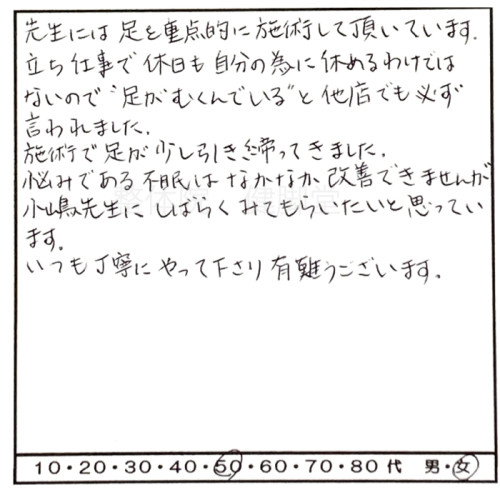 先生には足を重点的に施術して頂いています.
立ち仕事で休日も自分の為に休めるわけでは
ないので"足がむくんでいる"と他店でも必ず
言われました.
施術で足が少し引き締ってきました.
悩みである不眠はなかなか改善できませんが
小嶋先生にしばらくみてもらいたいと思ってい
ます.
いつも丁寧にやって下さり有難うございます.
10・20・30・40・50・60・70・80代 男・女